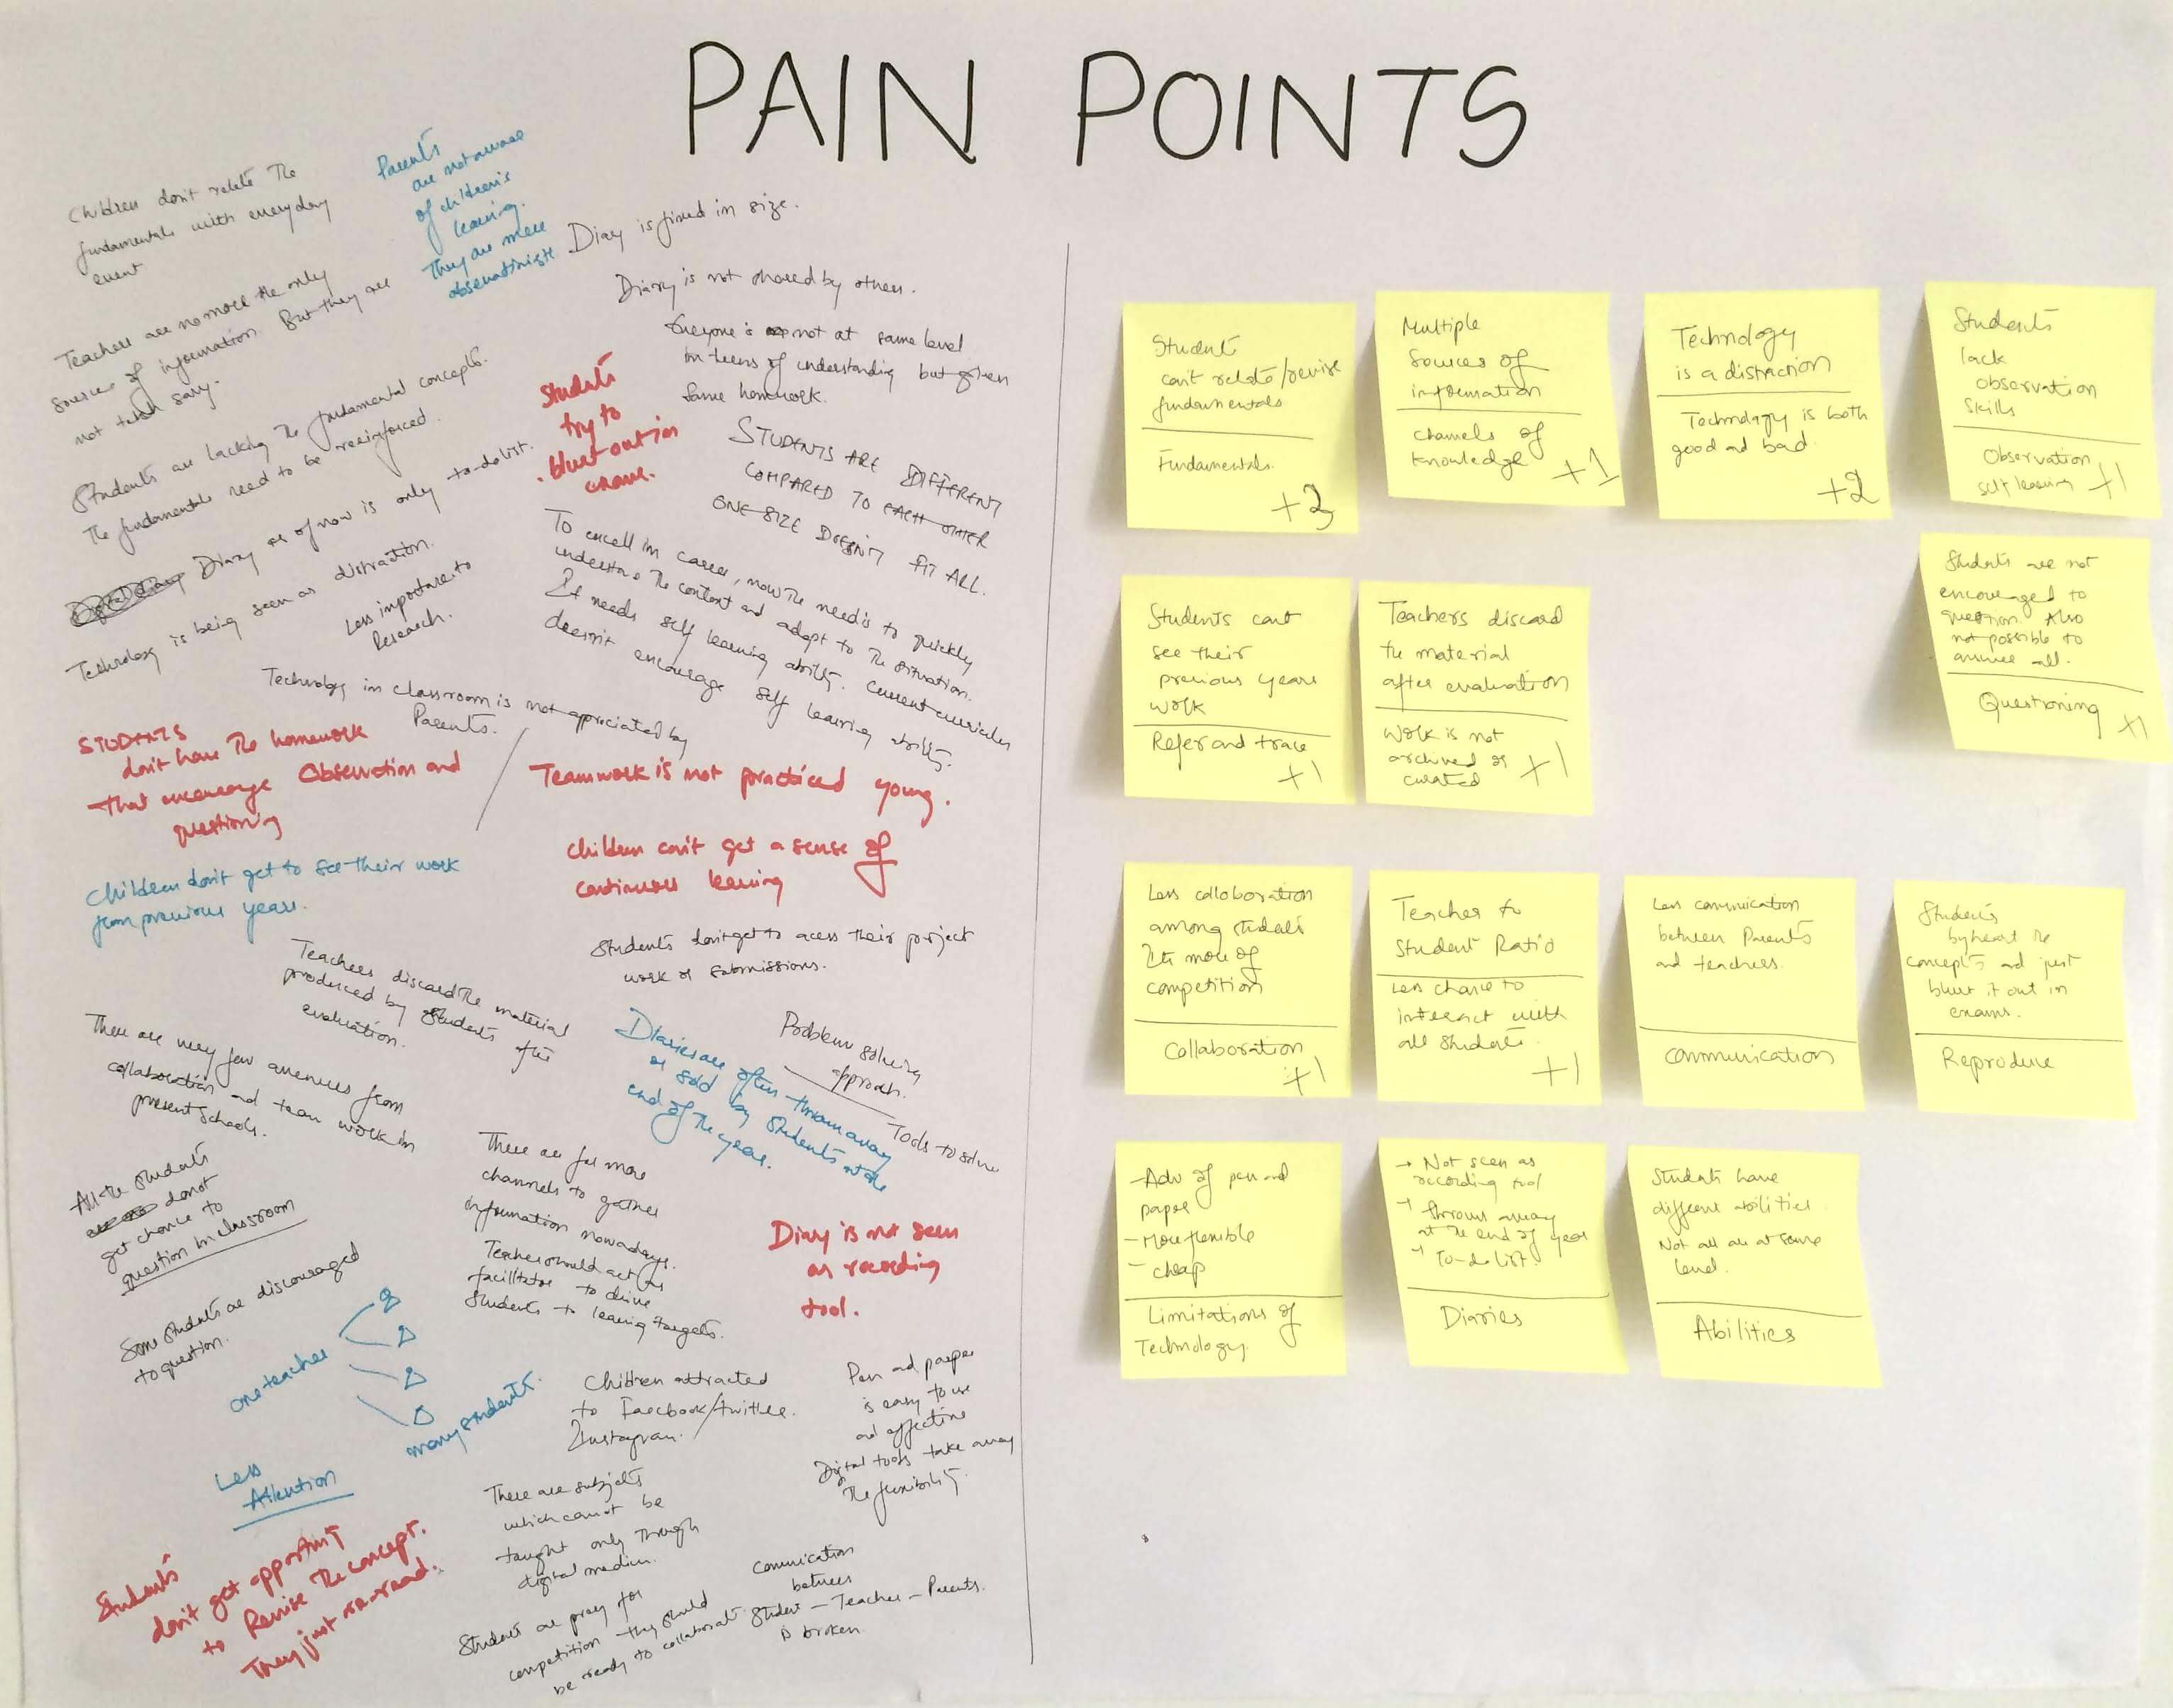 PAIN POINTS
Children don't relate The
fundamentals with everyday
event
Parents
are not aware
of children's
learning.
They are mere
Diary is fixed in size.
Diary is not shared by others.
Teachers are no more the only
source of information. But they are
not
Everyone is not at same level
in terms of understanding but given
Same homework.
Students are lacking the fundamental concepts.
The fundamentals need to be reeinforced.
Students
try to
blurt out in
exams.
STUDENTS ARE DIFFERENT
COMPARED TO EACH OTHER
ONE SIZE DOESN'T FIT ALL.
Diary as of now is only to-do list.
Technology is being seen as distraction.
Less importance to
Research.
To excell in career, now the need is to quickly
understand The context and adapt to The situation.
It needs self learning ability. Current curriculum
doesn't encourage self learning ability.
Technology in classroom is not appriciated by
Parents.
STUDENTS
don't have The homework
That encourage Observation and
questioning
Teamwork is not practiced young.
Children don't get to see their work
from previous years.
Children can't get a sense of
continuous learning
Students don't get to acess their project
work or submissions.
Teachers discard The material
produced by students after
evaluation.
There are very few avenues from
collaboration and team work in
present schools.
Diaries are often thrown away
or sold by students at the
end of the year.
Problem solving
approach.
Tools to solve
All the students
do not
get chance to
question in classroom
There are far more
channels to gather
information nowadays.
Teacher should act as
facilitator to drive
students to learning targets.
Diary is not seen
as recording
tool.
Some students are discouraged
to question.
one teacher
many students.
Less
Attention
Children attracted
to Facebook/twitter.
Instagram.
Pen and paper
is easy to use
and effective
Digital tools take away
The flexibility.
There are subjects
which cannot be
taught only Through
digital medium.
Students
don't get opportunity
to Revise The concept.
They just re-read.
Students are pray for
competition they should
be ready to collaborate
Communication
between
Student - Teacher - Parents.
is broken
Student
can't relate/revise
fundamentals
Fundamentals.
+3
Multiple
Sources of
information
Channels of
Knowledge
+1
Technology
is a distraction
Technology is both
good and bad.
+2
Students
lack
Observation
Skills
Observation
self learning
+1
Students cant
see their
previous years
work
Refer and trace
+1
Teachers discard
the material
after evaluation
Work is not
archived or
curated
+1
Students are not
encouraged to
question. Also
not possible to
answer all.
Questioning
+1
Less collaboration
among students
Its more of
competition
Collaboration
+1
Teacher to
Student Ratio
Less chance to
interact with
all students.
+1
Less communication
between Parents
and teachers.
Communication
Students
byheart the
concepts and just
blurt it out in
exams.
Reproduce
- Adv of pen and
paper
- More flexible
- cheap
Limitations of
Technology.
→ Not seen as
recording tool
→ thrown away
at the end of year
→ To-do list.
Diaries
Students have
different abilities.
Not all are at same
level.
Abilities